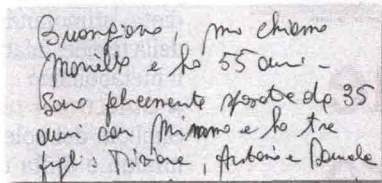 Buongiorno, mi chiamo
Mariella e ho 55 anni.
Sono felicemente sposata da 35
anni con Mimmo e ho tre
figli: Tiziana, Antonio e Daniele